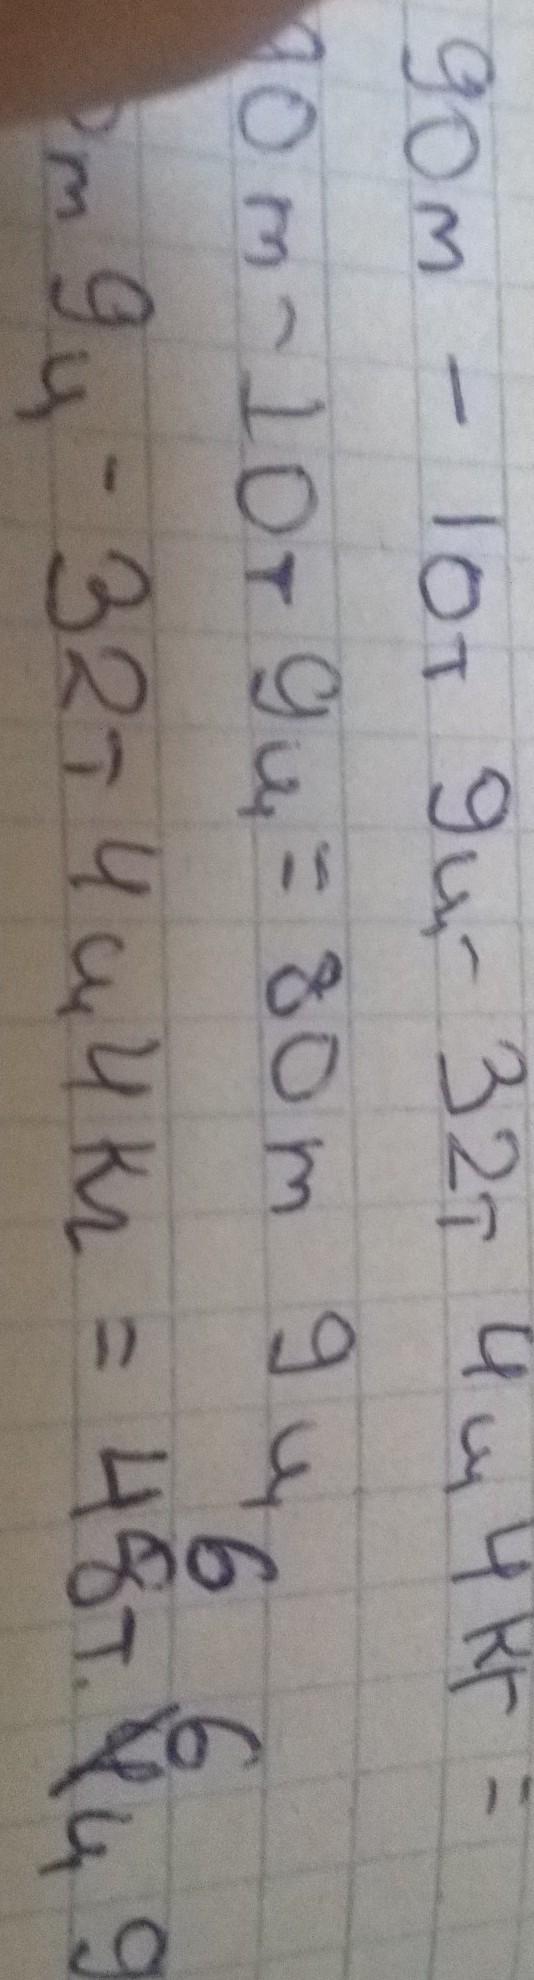 90т - 10т 9ц - 32т 4ц 4кг =
90т - 10т 9ц = 80т 9ц
т 9ц - 32т 4ц 4кг = 48т. 6ц 9
6 6